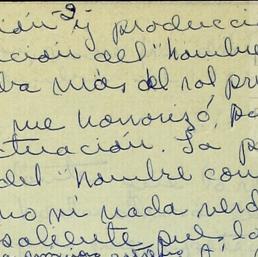 ión y producci
ción del "hombre
ra más del rol pr
me honorizó, pa
ctuación. La p
del "hombre con
no ni nada verd
saliente pues la